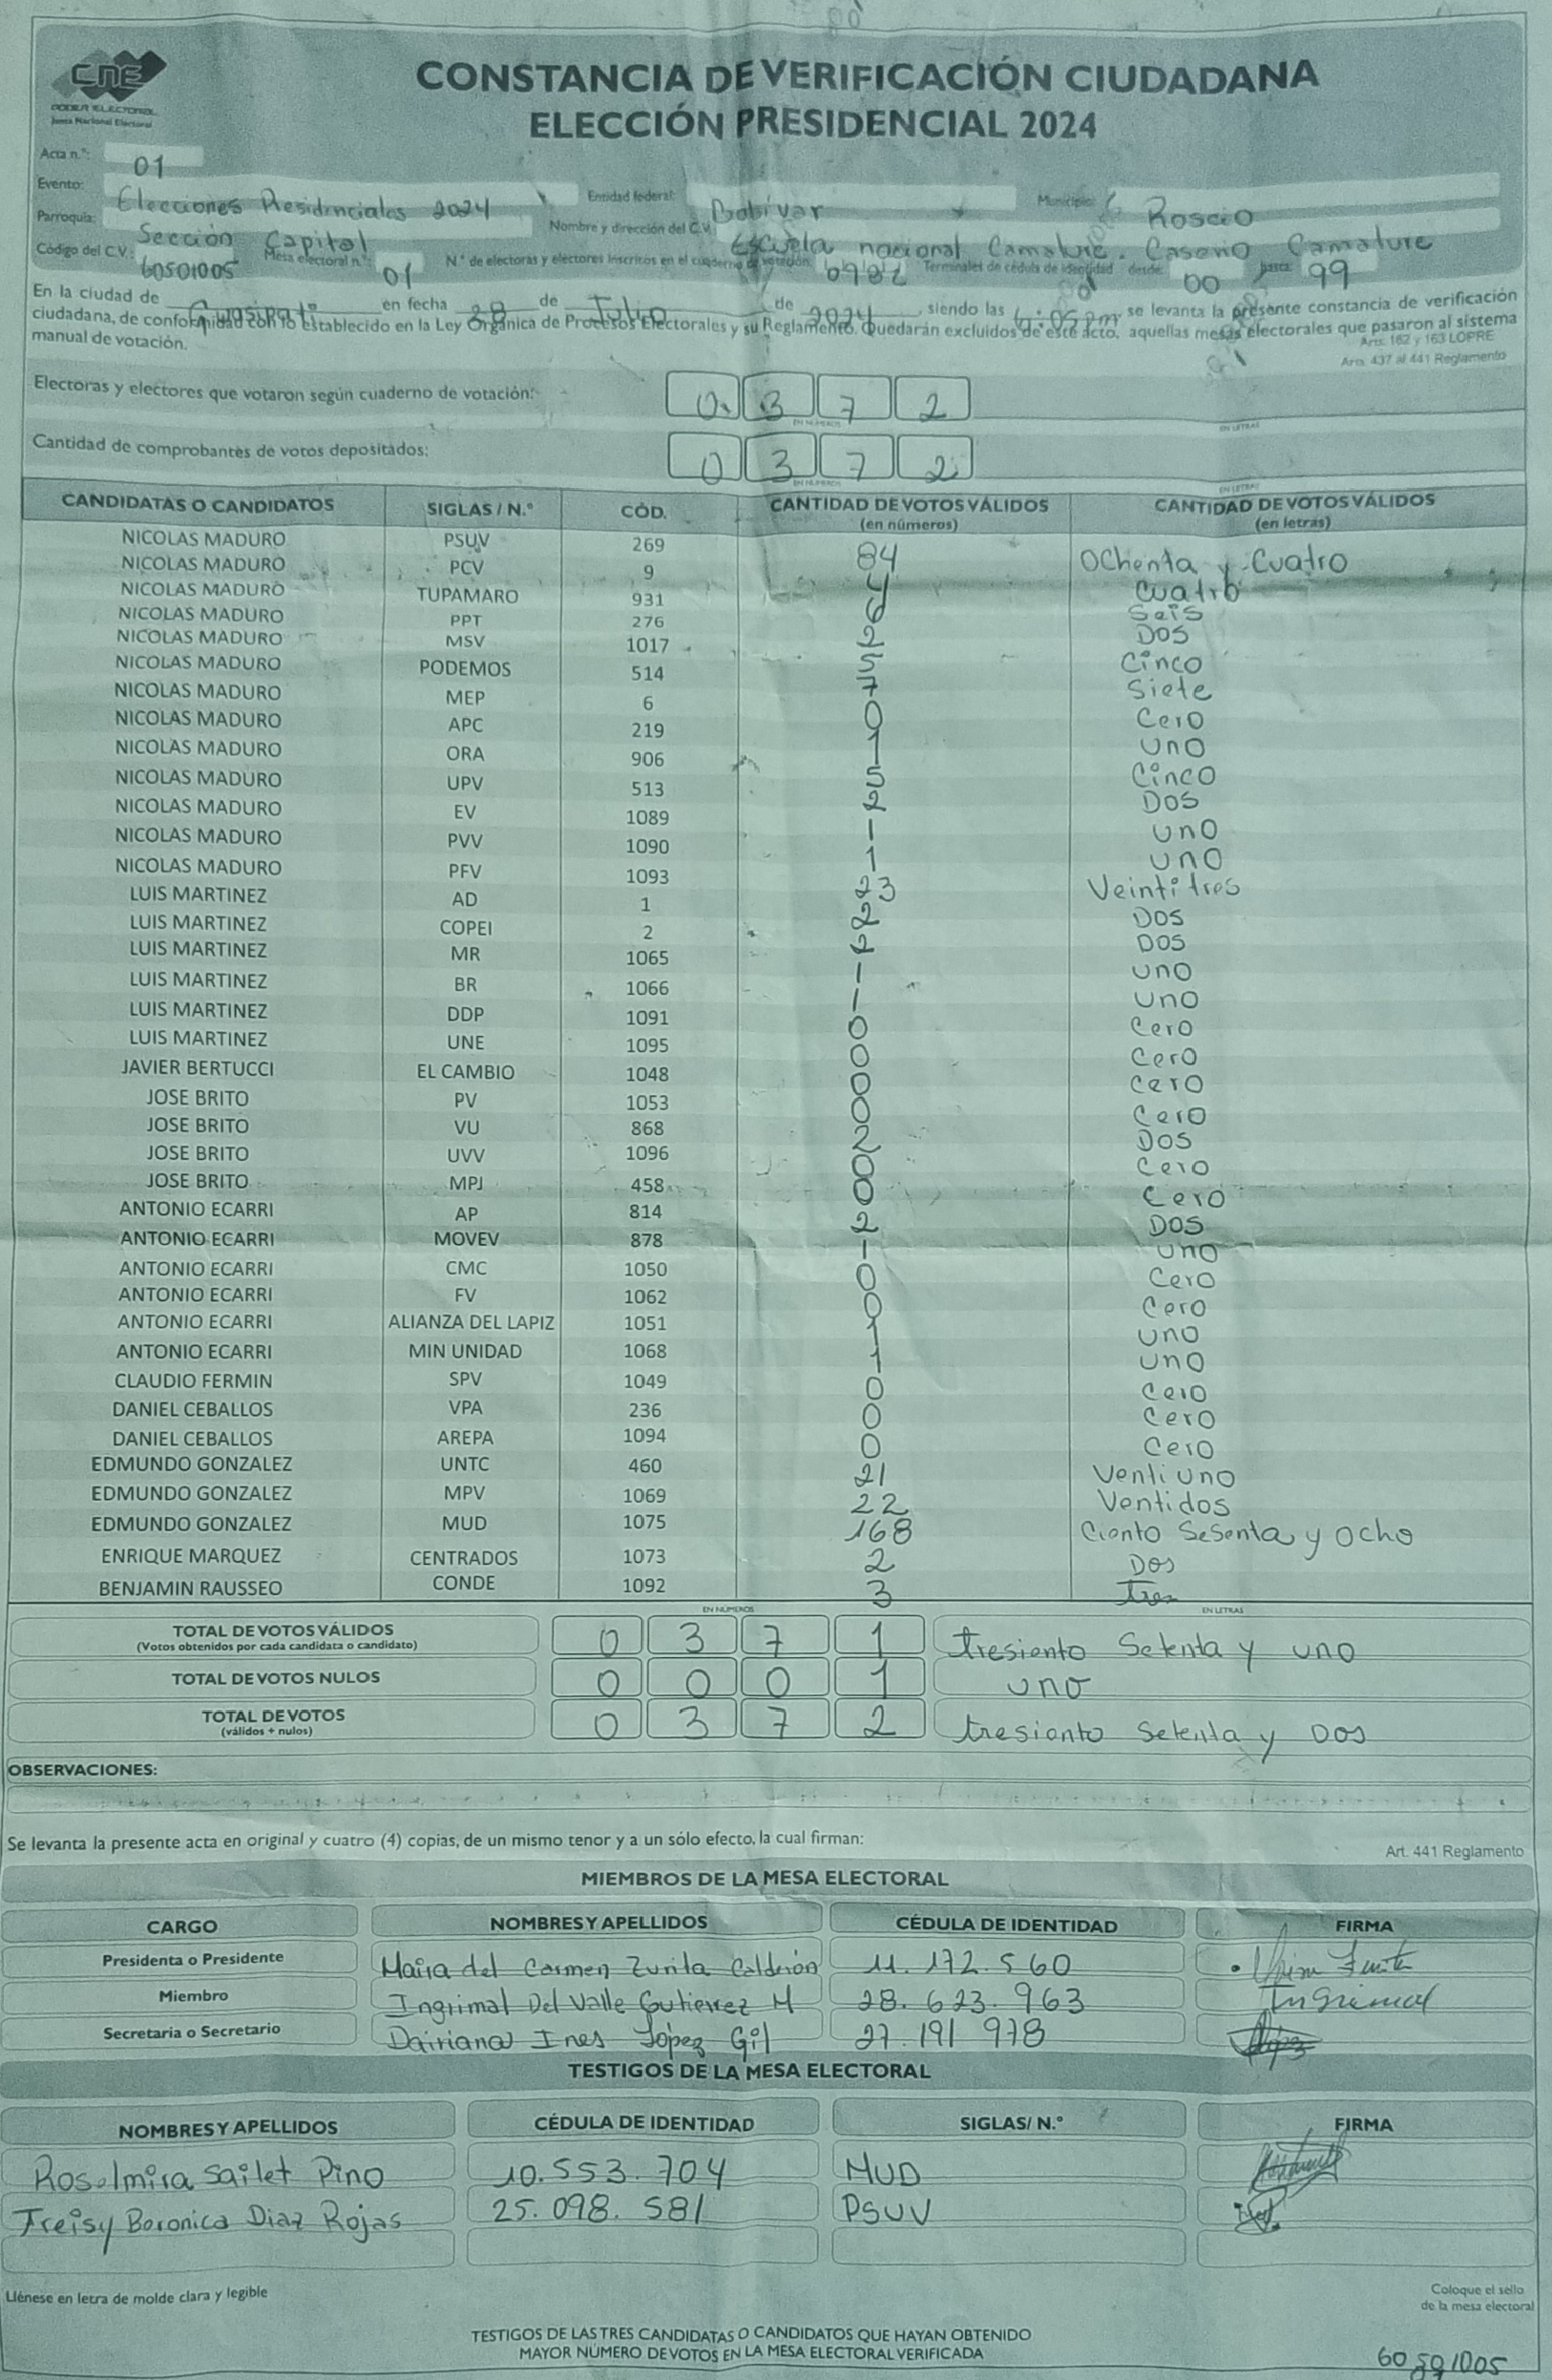 CNE
PODER ELECTORAL
Junta Nacional Electoral
CONSTANCIA DE VERIFICACIÓN CIUDADANA
ELECCIÓN PRESIDENCIAL 2024
Acta n.°: 01
Evento: Elecciones Presidenciales 2024 Entidad federal: Bolívar Municipio: Roscio
Parroquia: Sección Capital Nombre y dirección del C.V.: Escuela nacional Camature. Caserio Camature
Código del C.V.: 60501005 Mesa electoral n.°: 01 N.° de electoras y electores inscritos en el cuaderno de votación: 0982 Terminales de cédula de identidad desde: 00 hasta: 99
En la ciudad de Guasipati en fecha 28 de Julio de 2024, siendo las 6:05 pm, se levanta la presente constancia de verificación
ciudadana, de conformidad con lo establecido en la Ley Orgánica de Procesos Electorales y su Reglamento. Quedarán excluidos de este acto, aquellas mesas electorales que pasaron al sistema
manual de votación.
Arts. 162 y 163 LOPRE
Arts. 437 al 441 Reglamento
Electoras y electores que votaron según cuaderno de votación: 0 3 7 2
EN NÚMEROS EN LETRAS
Cantidad de comprobantes de votos depositados: 0 3 7 2
EN NÚMEROS EN LETRAS
CANDIDATAS O CANDIDATOS SIGLAS / N.° CÓD. CANTIDAD DE VOTOS VÁLIDOS (en números) CANTIDAD DE VOTOS VÁLIDOS (en letras)
NICOLAS MADURO PSUV 269 84 Ochenta y Cuatro
NICOLAS MADURO PCV 9 4 Cuatro
NICOLAS MADURO TUPAMARO 931 6 Seis
NICOLAS MADURO PPT 276 2 DOS
NICOLAS MADURO MSV 1017 5 Cinco
NICOLAS MADURO PODEMOS 514 7 Siete
NICOLAS MADURO MEP 6 0 Cero
NICOLAS MADURO APC 219 1 uno
NICOLAS MADURO ORA 906 5 Cinco
NICOLAS MADURO UPV 513 2 DOS
NICOLAS MADURO EV 1089 1 uno
NICOLAS MADURO PVV 1090 1 uno
NICOLAS MADURO PFV 1093 23 Veintitres
LUIS MARTINEZ AD 1 2 DOS
LUIS MARTINEZ COPEI 2 2 DOS
LUIS MARTINEZ MR 1065 1 uno
LUIS MARTINEZ BR 1066 1 uno
LUIS MARTINEZ DDP 1091 0 Cero
LUIS MARTINEZ UNE 1095 0 Cero
JAVIER BERTUCCI EL CAMBIO 1048 0 Cero
JOSE BRITO PV 1053 0 Cero
JOSE BRITO VU 868 2 DOS
JOSE BRITO UVV 1096 0 Cero
JOSE BRITO MPJ 458 0 Cero
ANTONIO ECARRI AP 814 2 DOS
ANTONIO ECARRI MOVEV 878 1 uno
ANTONIO ECARRI CMC 1050 0 Cero
ANTONIO ECARRI FV 1062 0 Cero
ANTONIO ECARRI ALIANZA DEL LAPIZ 1051 1 uno
ANTONIO ECARRI MIN UNIDAD 1068 1 uno
CLAUDIO FERMIN SPV 1049 0 Cero
DANIEL CEBALLOS VPA 236 0 Cero
DANIEL CEBALLOS AREPA 1094 0 Cero
EDMUNDO GONZALEZ UNTC 460 21 Ventiuno
EDMUNDO GONZALEZ MPV 1069 22 Ventidos
EDMUNDO GONZALEZ MUD 1075 168 Ciento Sesenta y Ocho
ENRIQUE MARQUEZ CENTRADOS 1073 2 Dos
BENJAMIN RAUSSEO CONDE 1092 3 Tres
EN NÚMEROS EN LETRAS
TOTAL DE VOTOS VÁLIDOS 0 3 7 1 tresiento Setenta y uno
(Votos obtenidos por cada candidata o candidato)
TOTAL DE VOTOS NULOS 0 0 0 1 uno
TOTAL DE VOTOS 0 3 7 2 tresiento Setenta y Dos
(válidos + nulos)
OBSERVACIONES:
Se levanta la presente acta en original y cuatro (4) copias, de un mismo tenor y a un sólo efecto, la cual firman:
Art. 441 Reglamento
MIEMBROS DE LA MESA ELECTORAL
CARGO NOMBRES Y APELLIDOS CÉDULA DE IDENTIDAD FIRMA
Presidenta o Presidente Maira del Carmen Zurita Calderón 11.172.560
Miembro Ingrimal Del Valle Gutierrez M 28.623.963 Ingrimal
Secretaria o Secretario Dairiana Ines López Gil 27.191 978
TESTIGOS DE LA MESA ELECTORAL
NOMBRES Y APELLIDOS CÉDULA DE IDENTIDAD SIGLAS/ N.° FIRMA
Roselmira Sailet Pino 10.553.704 MUD
Freisy Beronica Diaz Rojas 25.098.581 PSUV
Llénese en letra de molde clara y legible
Coloque el sello
de la mesa electoral
TESTIGOS DE LAS TRES CANDIDATAS O CANDIDATOS QUE HAYAN OBTENIDO
MAYOR NÚMERO DE VOTOS EN LA MESA ELECTORAL VERIFICADA
60501005